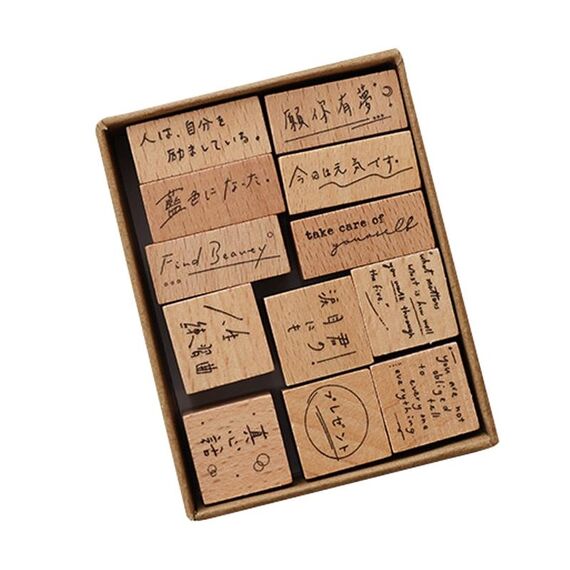 人は、自分を
励ましている。
願你有夢
藍色になった。
今日は元気です。
Find Beauty
take care of
yourself
人生
練習曲
涙目君
に
も
"what matters
most is how well
you walk through
the fire."
真心話
プレゼント
"you are not
obliged
to tell
everyone
everything